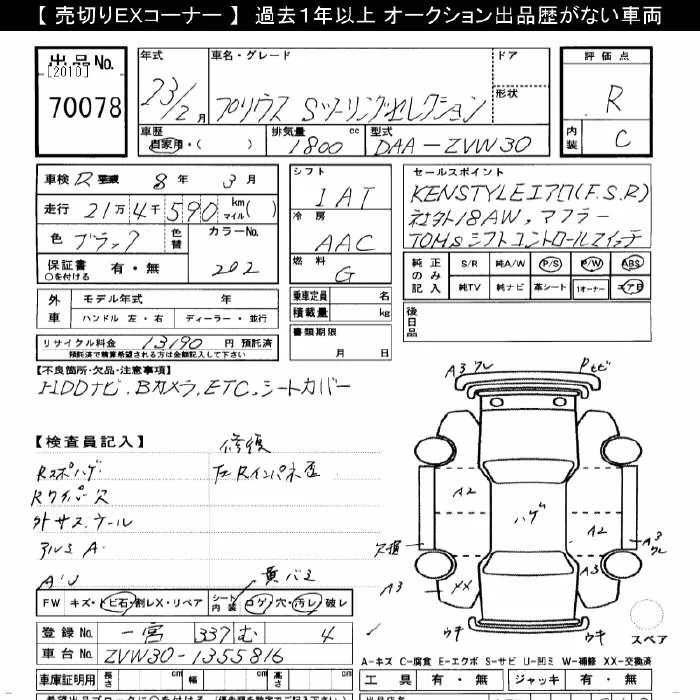 【売切りEXコーナー】 過去1年以上 オークション出品歴がない車両
出品No.
[2010]
70078
年式
23/2月
車名・グレード
プリウス Sツーリングセレクション
ドア
形状
評価点
R
内装
C
車歴
自家用・( )
排気量
1800 cc
型式
DAA-ZVW30
車検 R 8年 3月
走行 21万4千590 km マイル( )
色 ブラック
色替
カラーNo.
202
保証書 有・無
○を付ける
シフト
IAT
冷房
AAC
燃料
G
セールスポイント
KENSTYLEエアロ(F.S.R)
社外18AW,マフラー
TOMsシフトコントロールスイッチ
純正のみ記入
S/R 純A/W P/S P/W ABS
純TV 純ナビ 革シート 1オーナー エアB
外車
モデル年式 年
ハンドル 左・右 ディーラー・並行
乗車定員 名
積載量 kg
後日品
リサイクル料金 13190 円 預託済
預託済で精算希望される方は金額記入して下さい
書類期限
月 日
【不良箇所・欠品・注意事項】
HDDナビ,Bカメラ,ETC,シートカバー
【検査員記入】
修復
Rスポハゲ
左Rインパネ歪
Rワイパー欠
外サス.ナール
アルミA.
黄バミ
FW キズ・トビ石・割レX・リペア
シート内装 コゲ・穴・汚レ・破レ
登録No. 一宮 337 む 4
車台No. ZVW30-1355816
車庫証明用 長さ cm 幅 cm 高さ cm
A3ワレ
Pセビ
A2
ハゲ
A2
欠損
A3ワレ
A3
XX
A3
ウキ
ウキ
スペア
A-キズ C-腐食 E-エクボ S-サビ U-凹ミ W-補修 XX-交換済
工具 有・無 ジャッキ 有・無